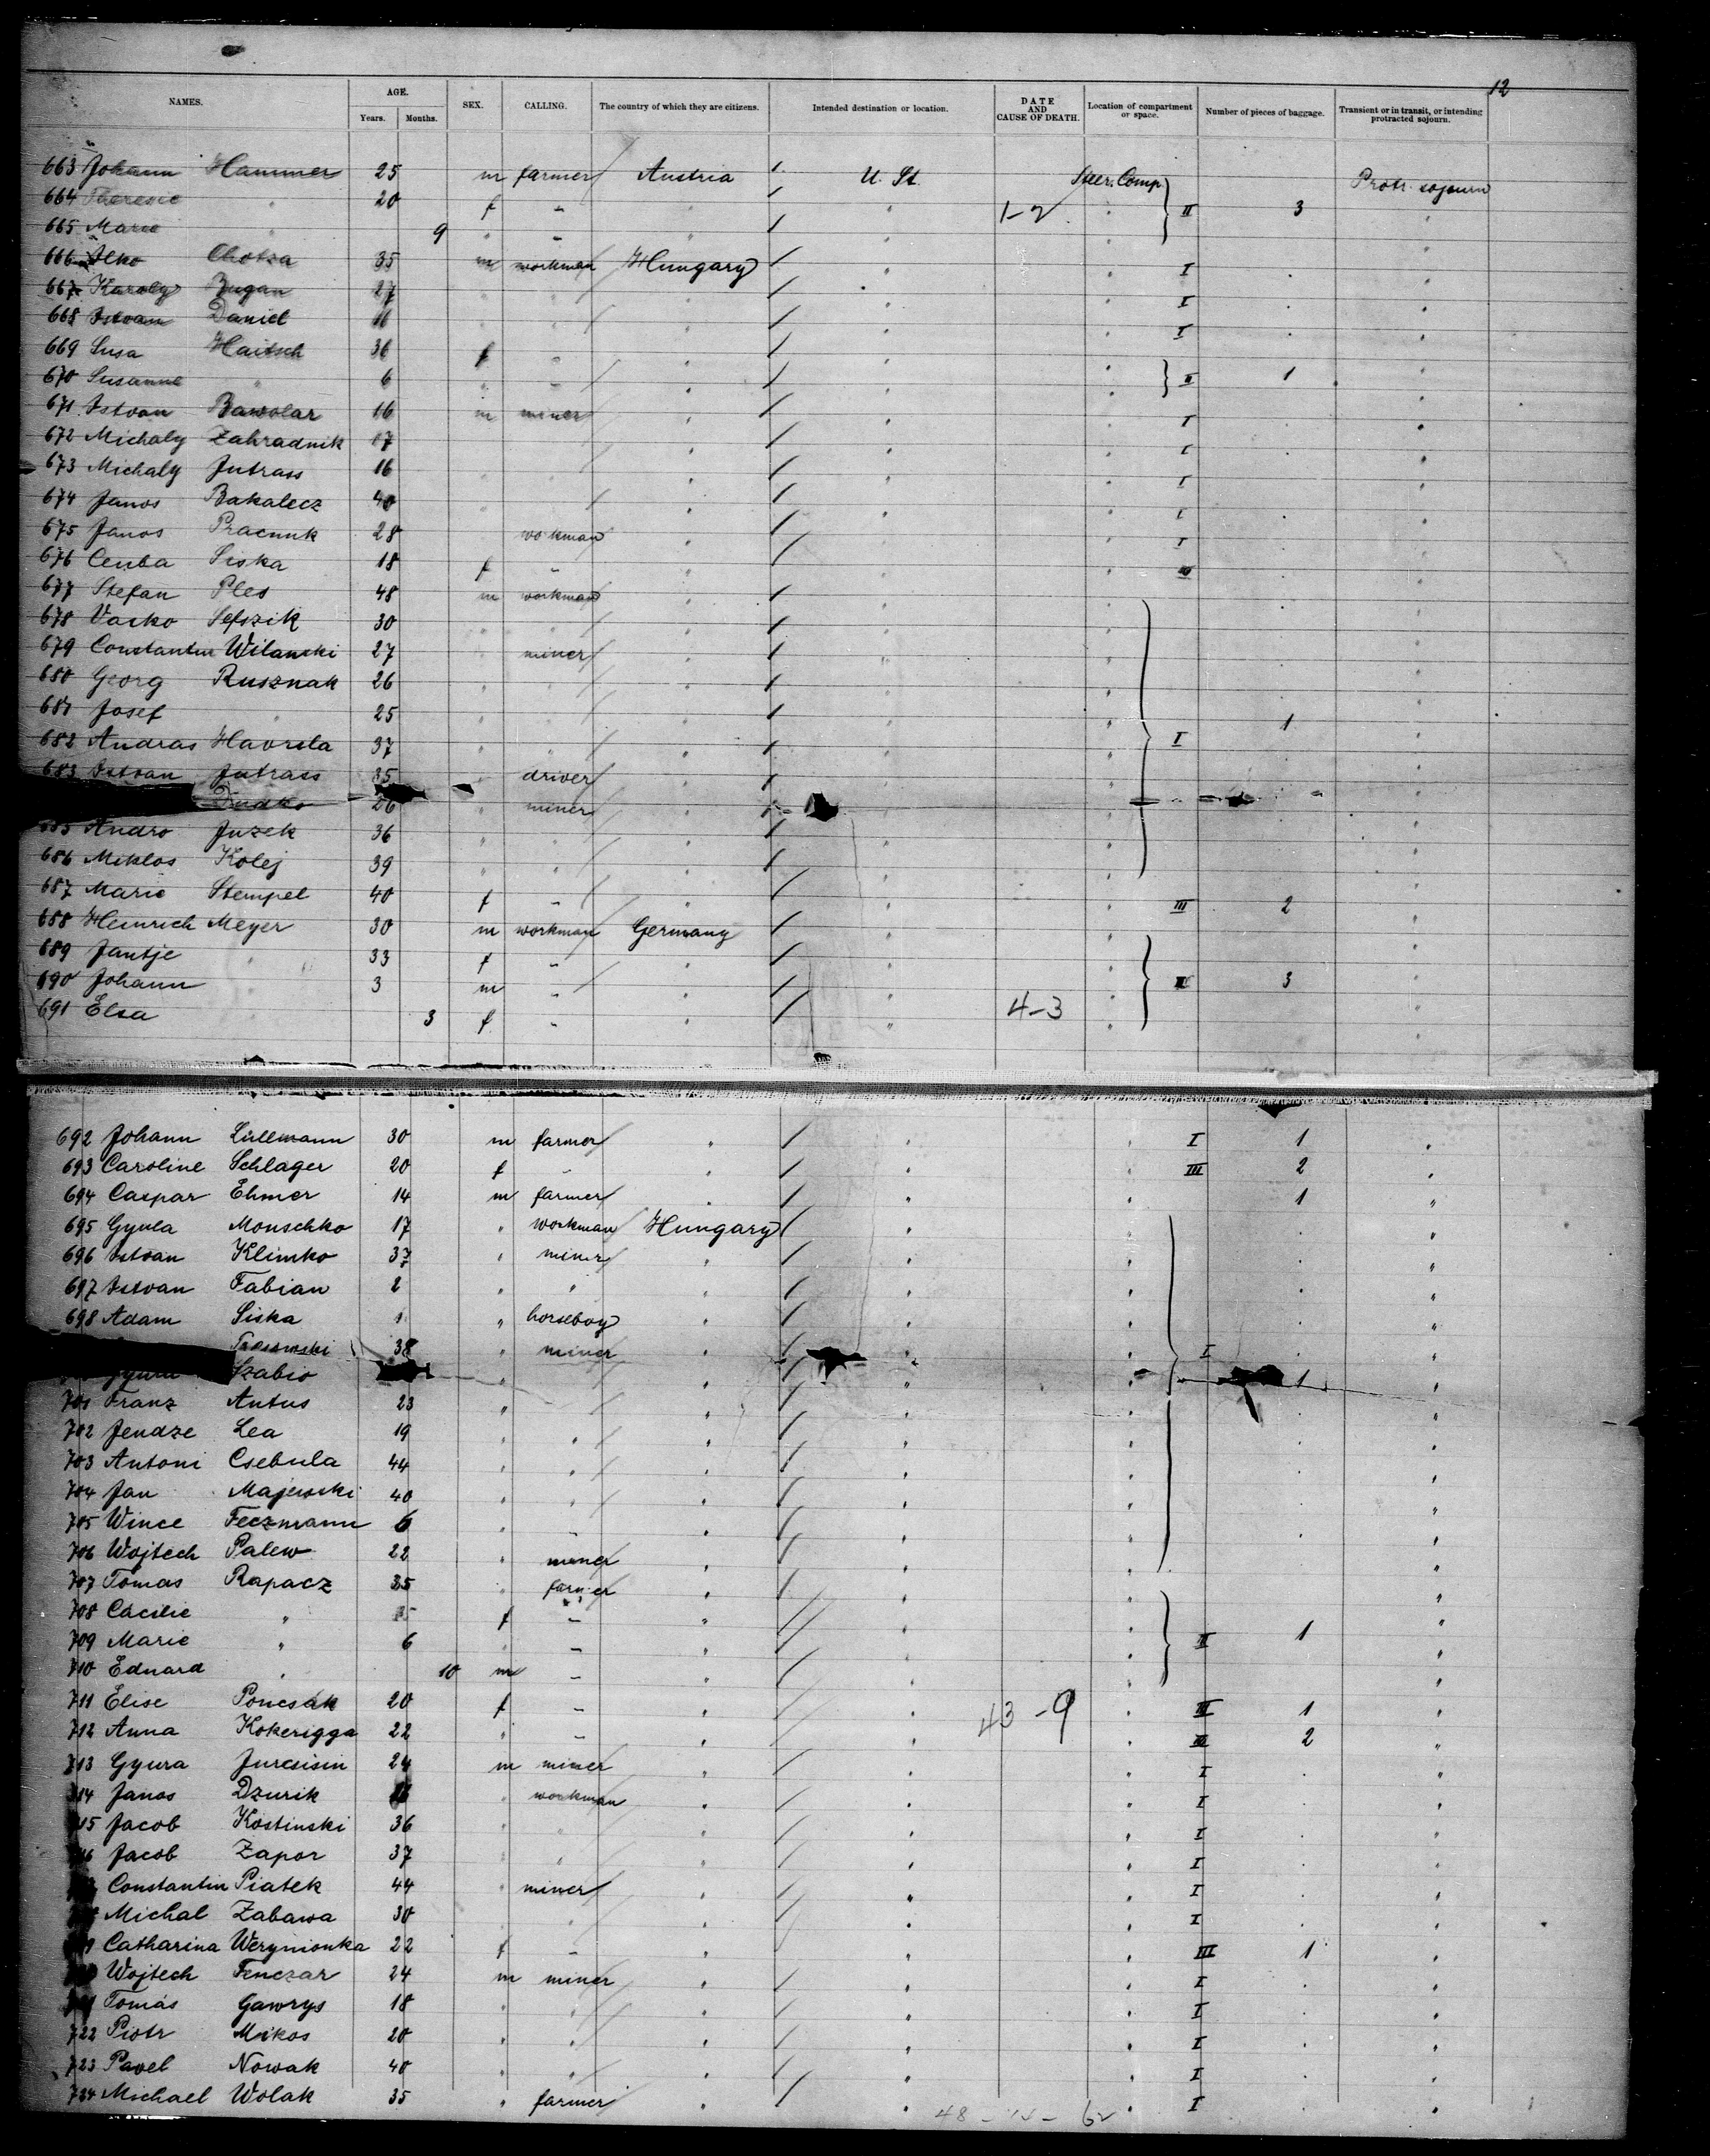 12
NAMES. AGE. Years. Months. SEX. CALLING. The country of which they are citizens. Intended destination or location. DATE AND CAUSE OF DEATH. Location of compartment or space. Number of pieces of baggage. Transient or in transit, or intending protracted sojourn.
663 Johann Hammer 25 m farmer Austria / U. St. Steer. Comp. Protr. sojourn
664 Theresie " 20 f - " / " 1-2 " II 3 "
665 Marie " 9 " - " / " " "
666 Ilko Chotza 35 m workman Hungary / " " I . "
667 Karoly Bugan 27 " " " / " " I . "
668 Istvan Daniel 16 " " " / " " I . "
669 Susa Haitsch 36 f - " / " " "
670 Susanne " 6 " - " / " " II 1 "
671 Istvan Bawolar 16 m miner " / " " I . "
672 Michaly Zahradnik 17 " " " / " " I . "
673 Michaly Jutrass 16 " " " / " " I . "
674 Janos Bakalecz 40 " " " / " " I . "
675 Janos Pracnuk 28 " workman " / " " I . "
676 Cenba Siska 18 f - " / " " III . "
677 Stefan Ples 48 m workman " / " " "
678 Vasko Sefszik 30 " " " / " " "
679 Constantin Wilanski 27 " miner " / " " "
680 Georg Rusznak 26 " " " / " " "
681 Josef " 25 " " " / " " 1 "
682 Andras Havrila 37 " " " / " " I "
683 Istvan Jutrass 35 " driver " / " " "
Dudko 26 " miner " / " " "
685 Andro Juzek 36 " " " / " " "
686 Miklos Kolej 39 " " " / " " "
687 Marie Stempel 40 f - " / " " III 2 "
688 Heinrich Meyer 30 m workman Germany / " " "
689 Jantje " 33 f - " / " " "
690 Johann " 3 m - " / " " III 3 "
691 Elsa " 3 f - " / " 4-3 " "
692 Johann Lüllmann 30 m farmer " / " " I 1 "
693 Caroline Schlager 20 f - " / " " III 2 "
694 Caspar Ehmer 14 m farmer " / " " 1 "
695 Gyula Monschko 17 " workman Hungary / " " . "
696 Istvan Klimko 37 " miner " / " " . "
697 Istvan Fabian 2 " " " / " " . "
698 Adam Siska " horseboy " / " " . "
38 " miner " / " " I "
Szabio " " " / " " 1 "
701 Franz Antus 23 " " " / " " . "
702 Jendze Lea 19 " " " / " " . "
703 Antoni Csebula 44 " " " / " " . "
704 Jan Majewski 40 " " " / " " "
705 Wince Feczmann 6 " - " / " " . "
706 Wojtech Palew 22 " miner " / " " "
707 Tomas Rapacz 35 " farmer " / " " "
708 Cäcilie " f - " // " " "
709 Marie " 6 " - " / " " II 1 "
710 Eduard " 10 m - " / " " "
711 Elise Poncsák 20 f - " / " 43-9 " III 1 "
712 Anna Kokerigga 22 " - " / " " III 2 "
713 Gyura Jurcsisin 24 m miner " / " " I . "
714 Janos Dzurik " workman " / " " I . "
715 Jacob Kostinski 36 " " " / " " I . "
716 Jacob Zapor 37 " " " / " " I . "
Constantin Piatek 44 " miner " / " " I . "
Michal Zabawa 30 " " " / " " I . "
Catharina Werynionka 22 f - " / " " III 1 "
Wojtech Fenczar 24 m miner " / " " I . "
Tomás Gawrys 18 " " " / " " I . "
722 Piotr Mikos 20 " " " / " " I . "
723 Pavel Nowak 40 " " " / " " I . "
724 Michael Wolak 35 " farmer " / " " I . "